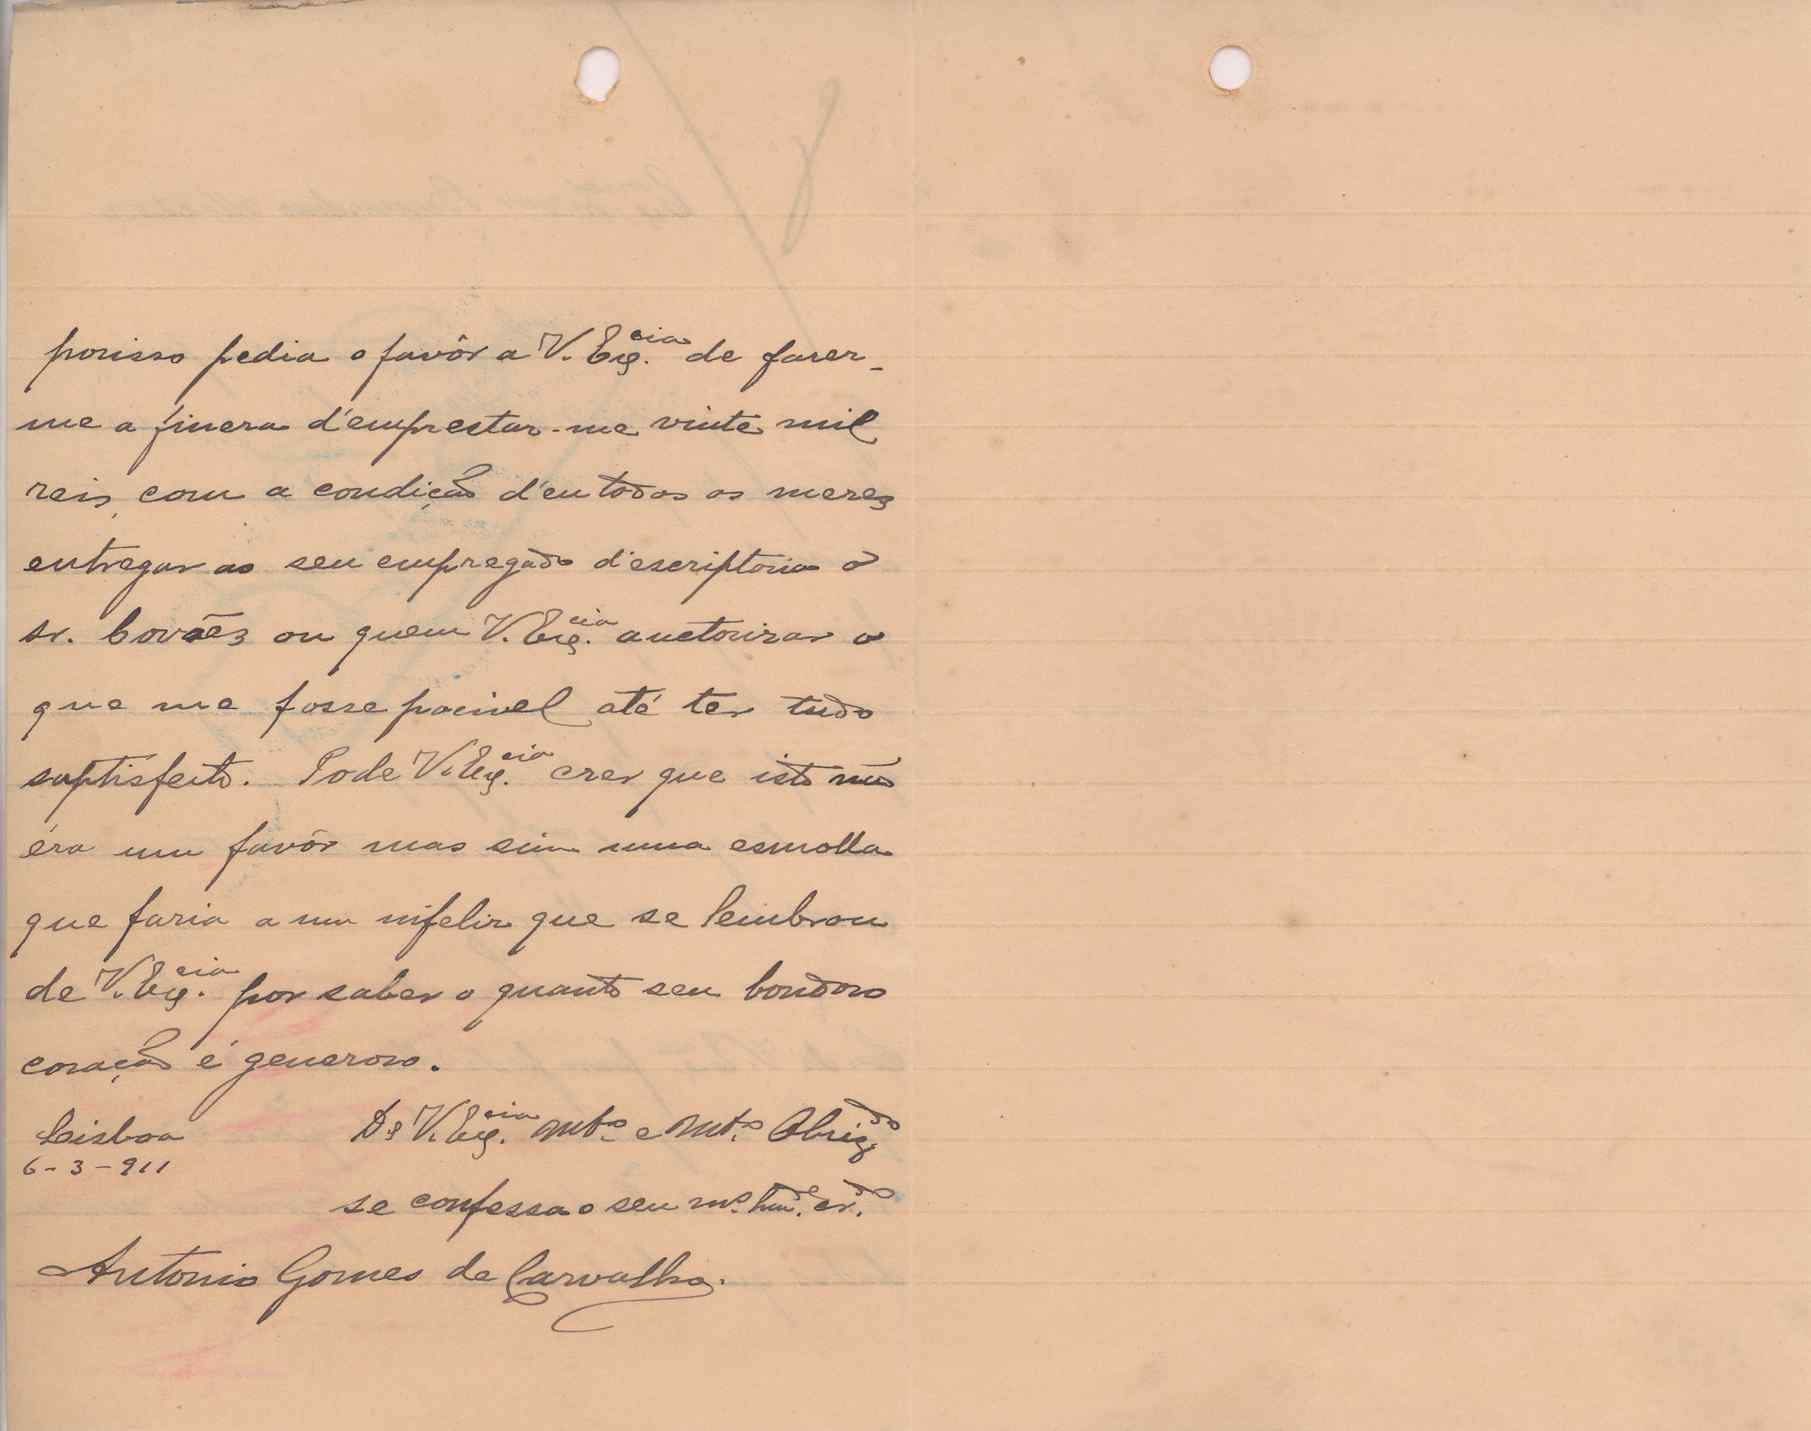 porisso pedia o favôr a V. Exç.cia de fazer-
me a fineza d'emprestar-me vinte mil
reis, com a condição d'eu todos os mezes
entregar ao seu empregado d'escriptorio o
sr. Covões ou quem V. Exç.cia auctorizar o
que me fosse pocivel até ter tudo
saptisfeito. Pode V. Exç.cia crer que isto não
éra um favôr mas sim uma esmolla
que faria a um infeliz que se lembrou
de V. Exç.cia por saber o quanto seu bondoso
coração é generoso.
Lisboa
6-3-911
De V. Exç.cia mt.o e mt.o Obrig.do
se confessa o seu m.o cr.do
Antonio Gomes de Carvalho.